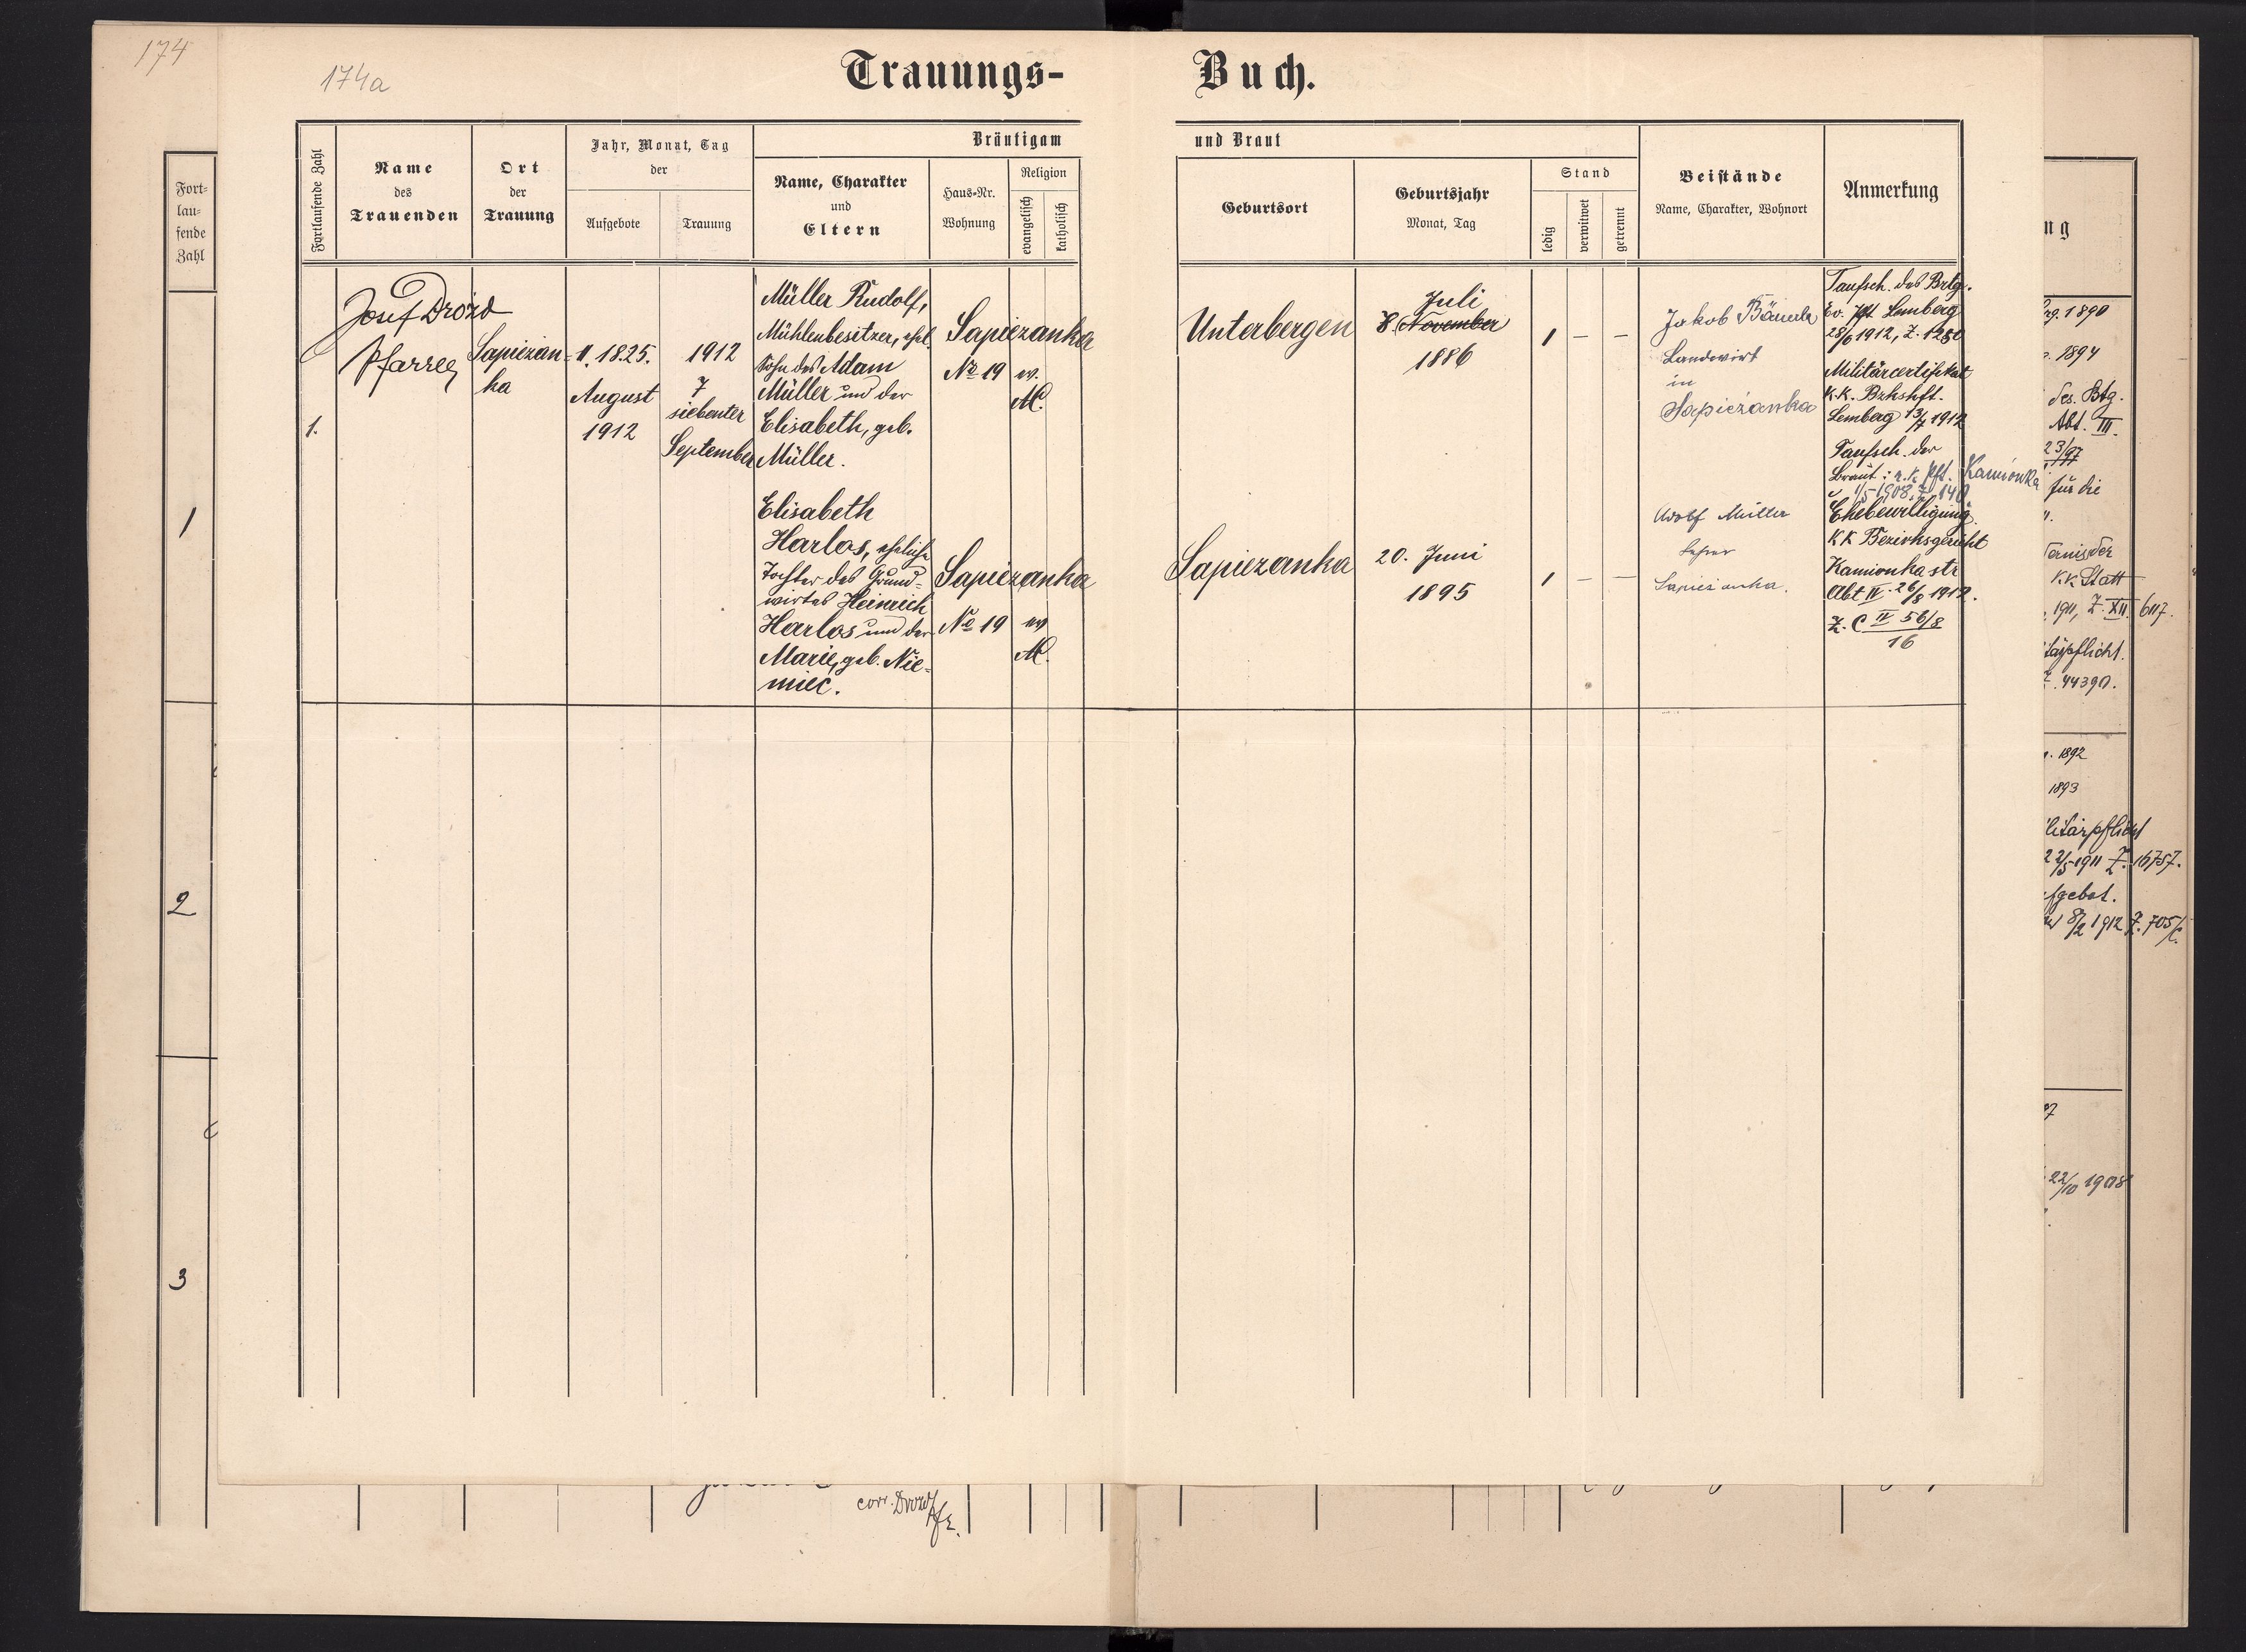 174
174a
Trauungs-
Buch.
Fort-
lau-
fende
Zahl
1
2
3
Fortlaufende Zahl
Name
des
Trauenden
Ort
der
Trauung
Jahr, Monat, Tag
der
Aufgebote
Trauung
Bräutigam
Name, Charakter
und
Eltern
Haus-Nr.
Wohnung
Religion
evangelisch
katholisch
und Braut
Geburtsort
Geburtsjahr
Monat, Tag
Stand
ledig
verwitwet
getrennt
Beistände
Name, Charakter, Wohnort
Anmerkung
1.
Josef Drozd
Pfarrer
Sapiezan-
ka
11. 18. 25.
August
1912
1912
7
siebenter
September
Müller Rudolf,
Mühlenbesitzer, ehel.
Sohn des Adam
Müller und der
Elisabeth, geb.
Müller.
Sapiezanka
No 19
ev.
A.C.
Unterbergen
Juli
8. November
1886
1 – –
Jakob Bäuerle
Landwirt
in
Sapieżanka
Taufsch. des Brtg.
Ev. Pft. Lemberg
28/6 1912, Z. 1280
Militärcertifikat
K.K. Bzhshft.
Lemberg 13/7 1912
Taufsch. der
Braut: r.k. Pft. Kamionka
1/5 1908, Z. 140
Ehebewilligung
KK Bezirksgericht
Kamionka str
Abt IV 26/8 1912.
Z. C II 56/8
16
Elisabeth
Harlos, eheliche
Tochter des Grund-
wirtes Heinrich
Harlos und der
Marie, geb. Nie-
miec.
Sapiezanka
No 19
ev
A.C.
Sapiezanka
20. Juni
1895
1 – –
Adolf Müller
Lehrer
Sapiezanka.
ng
1890
1894
des. Btg.
Abt. III.
23/97
für die
K.K. Statt
1911, Z. XII 6117.
44390.
1892
1893
22/5 1911 Z. 16757.
8/2 1912 Z. 705/
22/10 1908
corr. Drozd